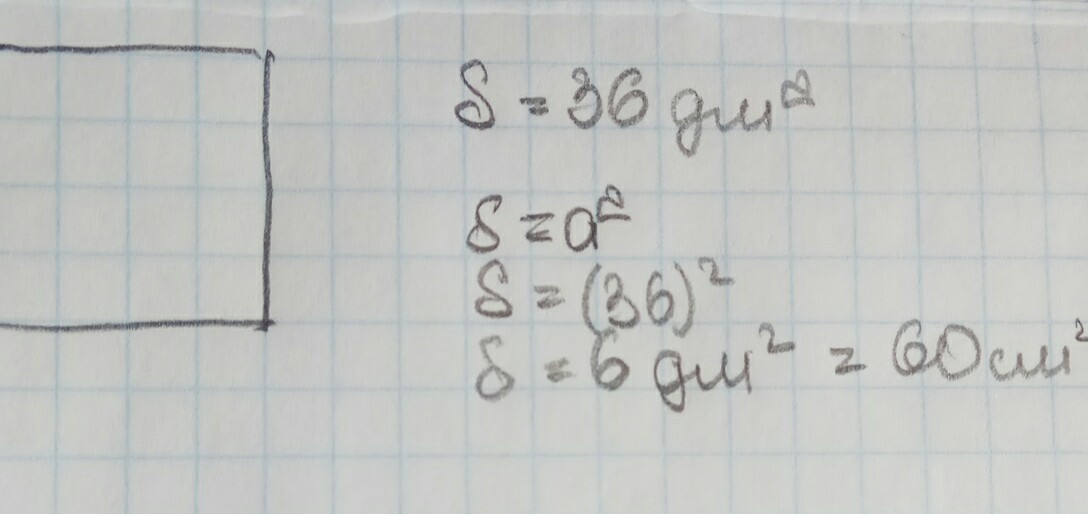 S = 36 дм²
S = a²
S = (36)²
S = 6 дм² = 60 см²